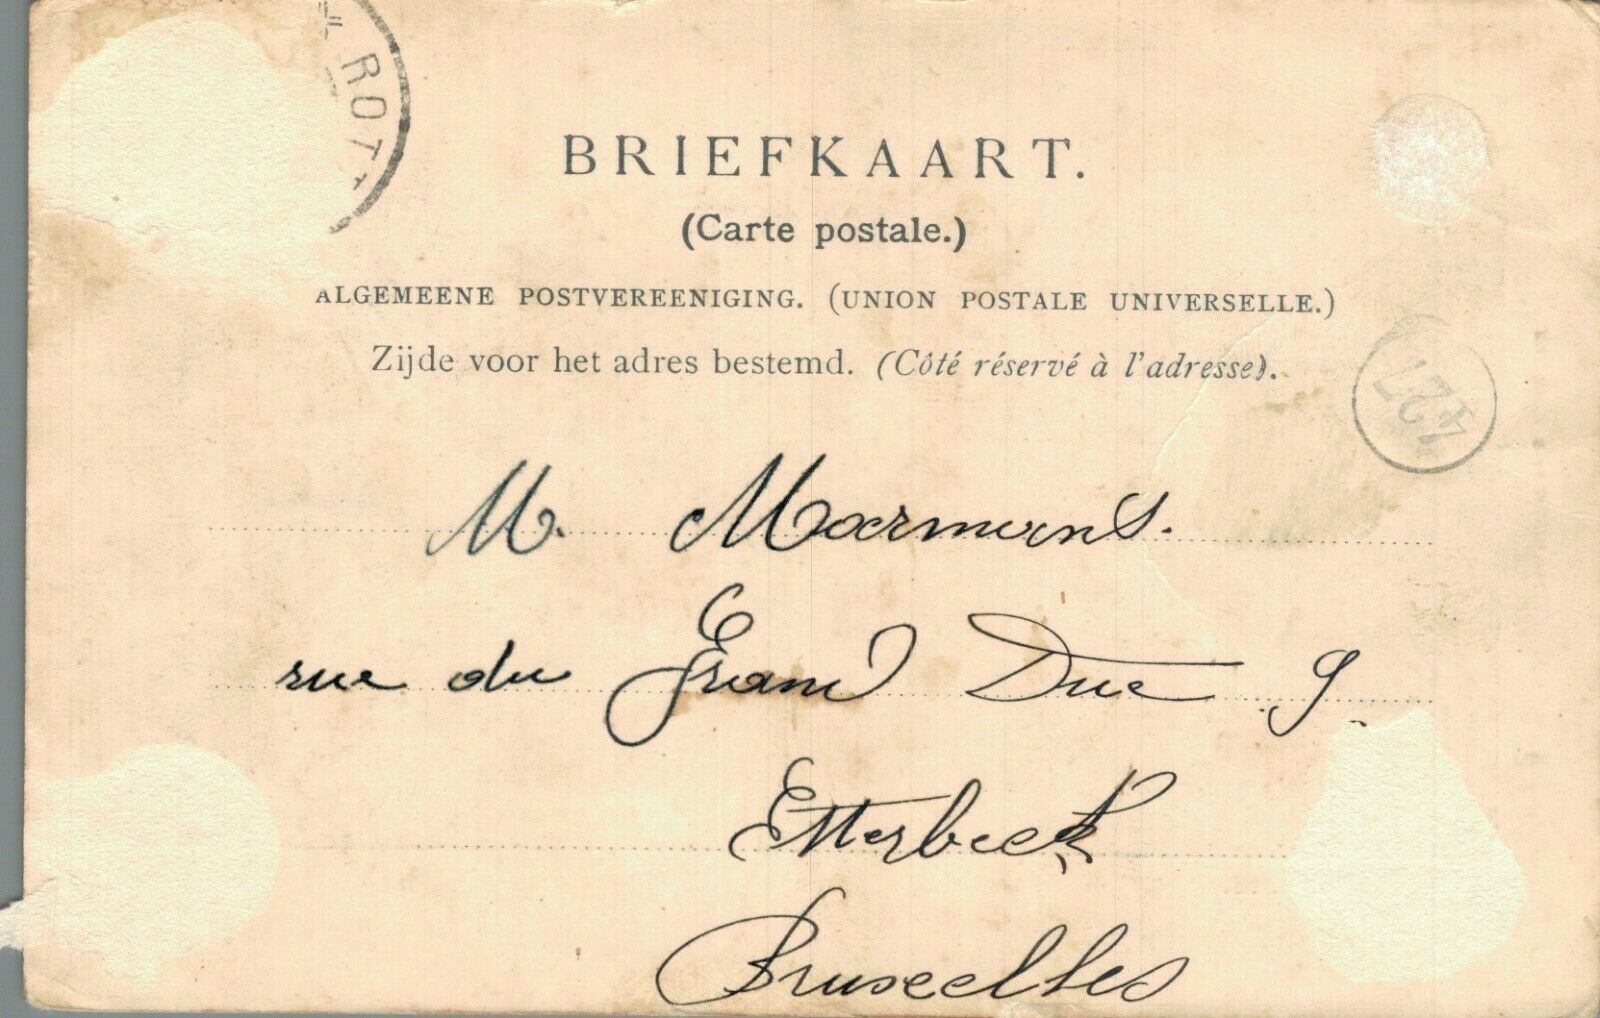 * ROT
BRIEFKAART.
(Carte postale.)
ALGEMEENE POSTVEREENIGING. (UNION POSTALE UNIVERSELLE.)
Zijde voor het adres bestemd. (Côté réservé à l'adresse).
427
M. Moermans.
rue du Grand Duc 9
Etterbeek
Bruxelles